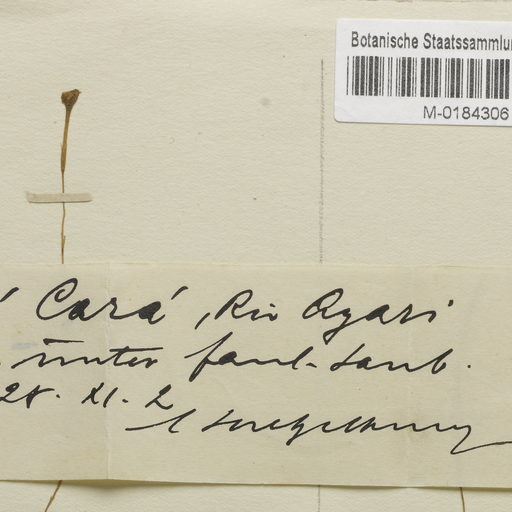 Botanische Staatssammlun
M-0184306
Cará, Rio Ayari
unter faul. Laub.
28. XI. 2